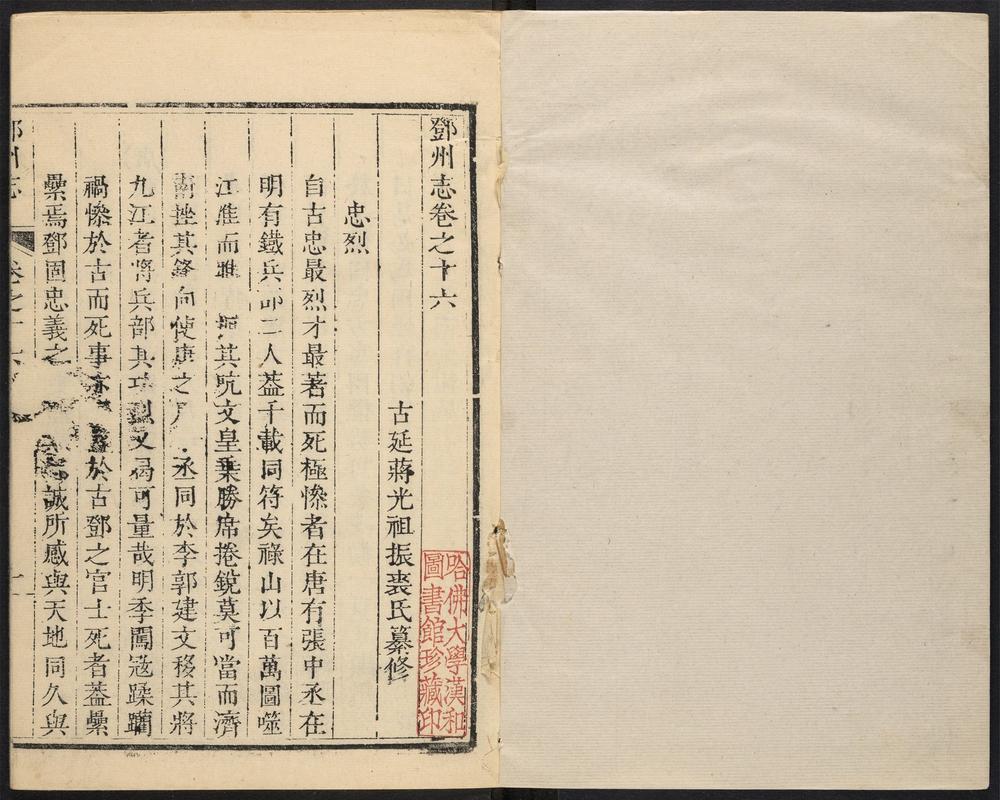 鄧州志卷之十六
古延蔣光祖振裘氏纂修
哈佛大學漢和
圖書館珍藏印
忠烈
自古忠最烈才最著而死極慘者在唐有張中丞在
明有鐵兵部二人蓋千載同符矣祿山以百萬圖噬
江淮而睢 扼其吭文皇乗勝席捲銳莫可當而濟
南挫其鋒向使唐之 丞同於李郭建文移其將
九江者將兵部其功烈又曷可量哉明季闖寇蹂躪
禍慘於古而死事亦 於古鄧之官士死者蓋纍
纍焉鄧固忠義之 誠所感與天地同久與
鄧州志 卷之十六 一